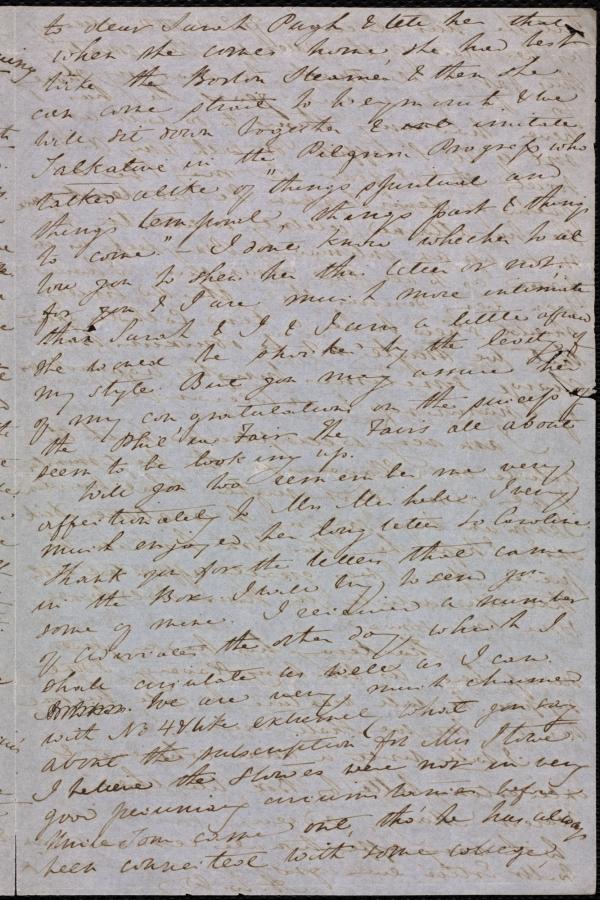 to dear Sarah Pugh & tell her that
when she comes home she had best
take the Boston Steamer, & then she
can come strait to Weymouth & we
will sit down together & imitate
Talkative in the Pilgrim's Progress who
talked alike of "things spiritual and
things temporal, things past & things
to come." I don't know whether to al
low you to shew her this letter or not,
for you & I are much more intimate
than Sarah & I & I am a little afraid
she would be shocked by the levity of
my style. But you may assure her
of my congratulations on the success of
the Phil'a Fair. The Fairs all about
seem to be looking up.
Will you too remember me very
affectionately to Mrs Michell. I very
much enjoyed her long letter to Caroline.
Thank you for the letters that came
in the Box. I will try to send you
some of mine. I received a number
of Advocates the other day, which I
shall circulate as well as I can.
We are very much charmed
with No 4 & like extremely what you say
about the subscription for Mrs Stowe.
I believe the Stowes were not in very
good pecuniary circumstances before
Uncle Tom came out, tho' he has always
been connected with some college